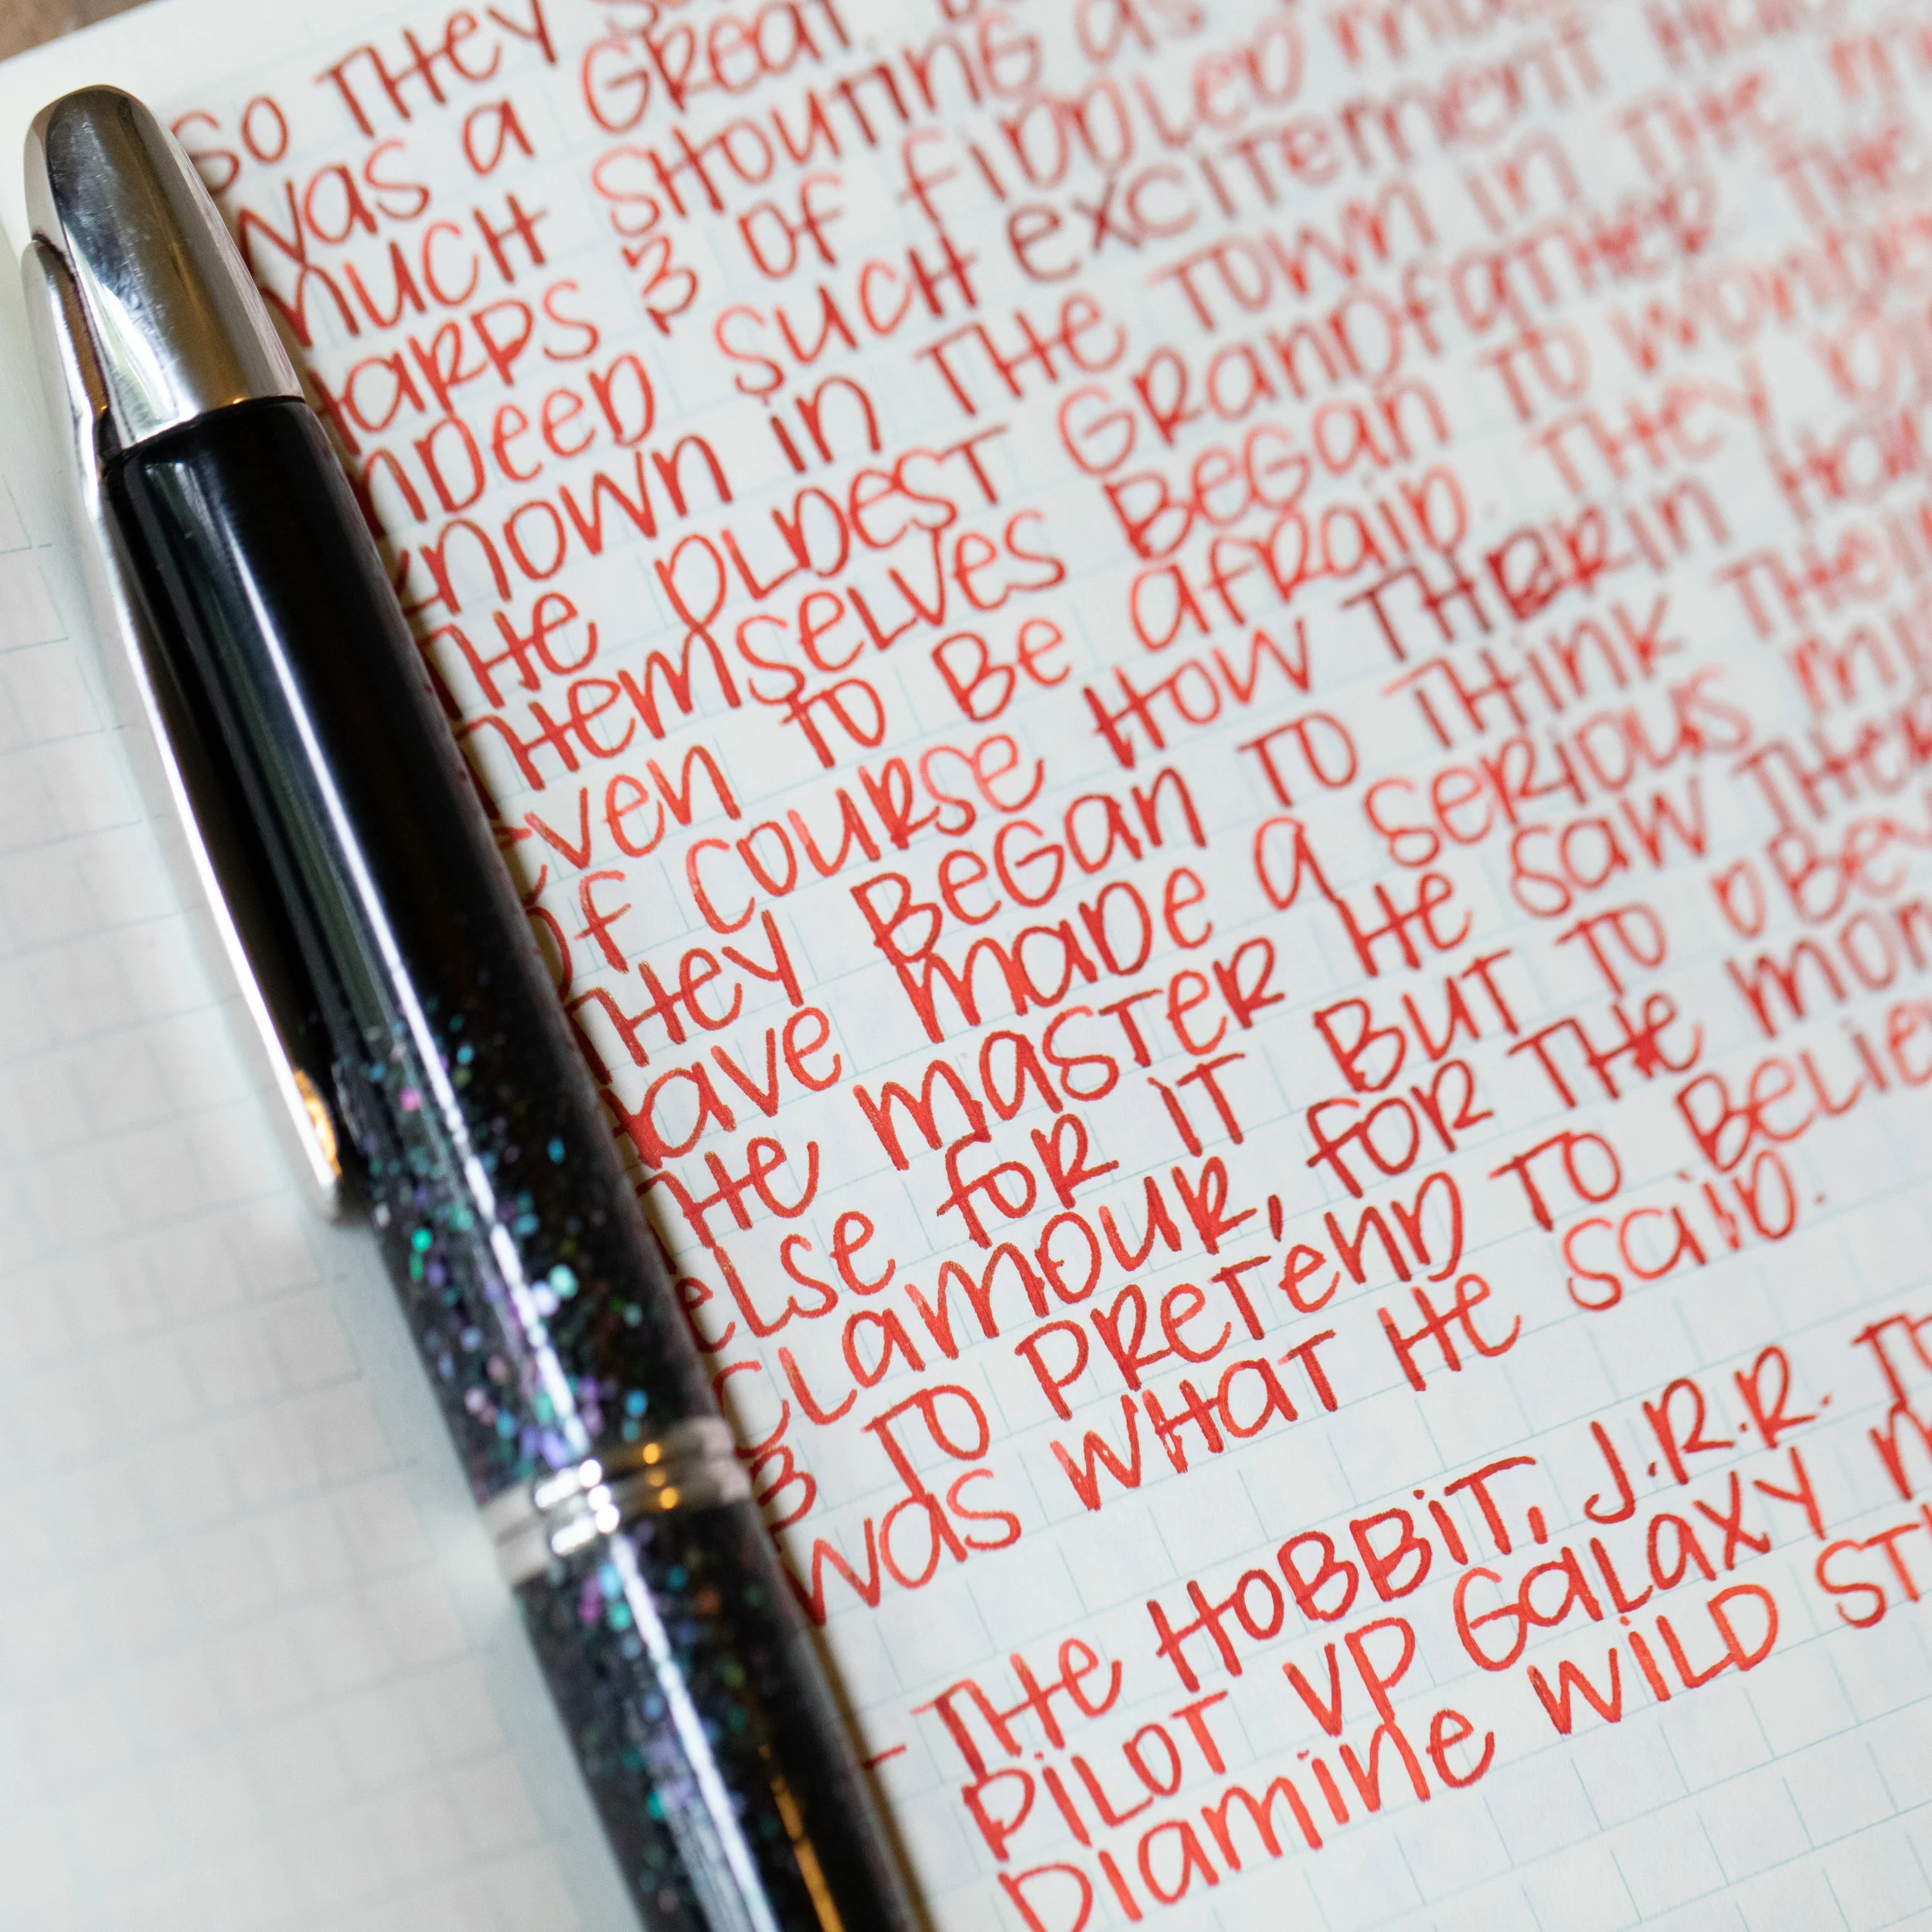 SO THEY
WAS A GREAT
MUCH SHOUTING AS
HARPS & OF FIDDLED
INDEED SUCH EXCITEMENT
KNOWN IN THE TOWN IN THE
THE OLDEST GRANDFATHER. THE
THEMSELVES BEGAN TO WONDER
EVEN TO BE AFRAID. THEY
OF COURSE HOW THORIN HAD
THEY BEGAN TO THINK
HAVE MADE A SERIOUS
THE MASTER HE SAW
ELSE FOR IT BUT TO OBEY
CLAMOUR, FOR THE
& TO PRETEND TO
WAS WHAT HE SAID.
- THE HOBBIT, J.R.R.
PILOT VP GALAXY
DIAMINE WILD